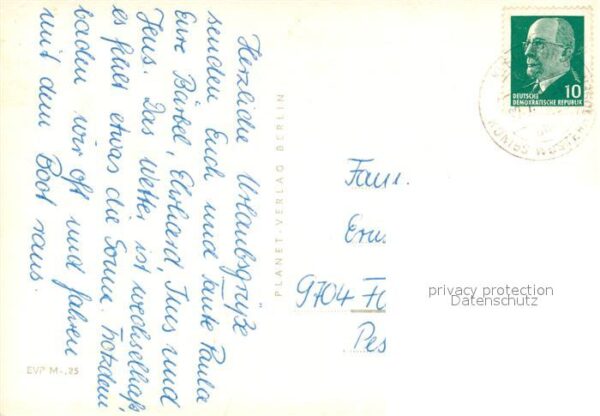 Herzliche Urlaubsgrüße
senden Euch und Tante Paula
Eure Bärbel, Ehrhard, Ines und
Jens. Das Wetter ist wechselhaft,
es fehlt etwas die Sonne. Trotzdem
baden wir oft und fahren
mit dem Boot raus.
EVP M -,25
PLANET-VERLAG BERLIN
10
DEUTSCHE
DEMOKRATISCHE REPUBLIK
Fam.
9704
privacy protection
Datenschutz